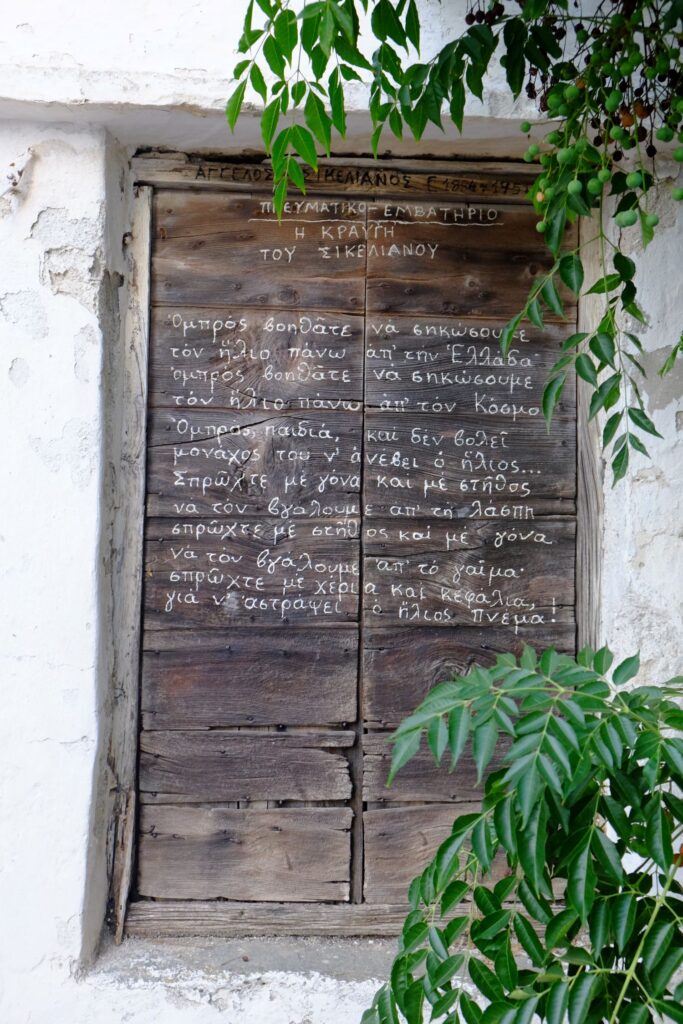 ΑΓΓΕΛΟΣ ΣΙΚΕΛΙΑΝΟΣ
ΠΝΕΥΜΑΤΙΚΟ-ΕΜΒΑΤΗΡΙΟ
Η ΚΡΑΥΓΗ
ΤΟΥ ΣΙΚΕΛΙΑΝΟΥ
Ὀμπρὸς βοηθᾶτε νὰ σηκώσουμε
τὸν ἥλιο πάνω ἀπ' τὴν Ἑλλάδα·
ὀμπρὸς βοηθᾶτε νὰ σηκώσουμε
τὸν ἥλιο πάνω ἀπ' τὸν Κόσμο
Ὀμπρὸς παιδιά, καὶ δὲν βολεῖ
μονάχος του ν' ἀνέβει ὁ ἥλιος...
Σπρῶχτε μὲ γόνα καὶ μὲ στῆθος
νὰ τὸν βγάλουμε ἀπ' τὴ λάσπη
σπρῶχτε μὲ στῆθος καὶ μὲ γόνα
νὰ τὸν βγάλουμε ἀπ' τὸ γαῖμα·
σπρῶχτε μὲ χέρια καὶ κεφάλια,
γιὰ ν' ἀστράψει ὁ ἥλιος πνέμα!